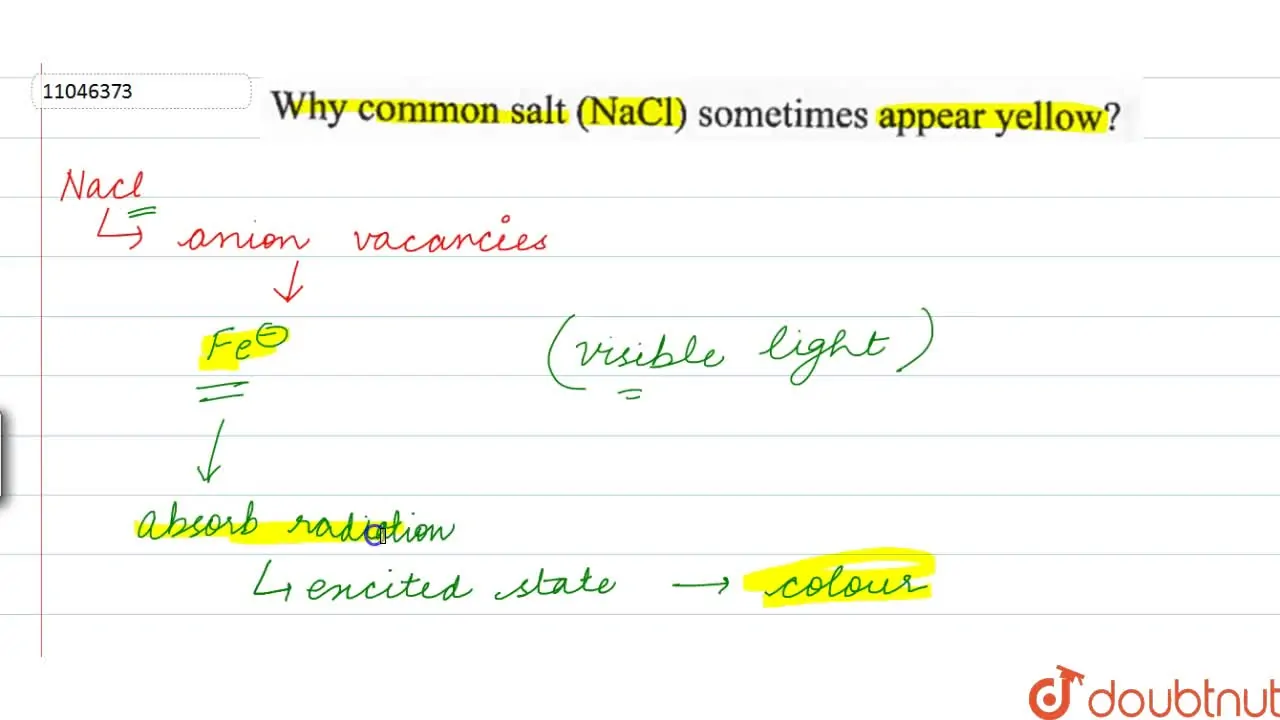 11046373
Why common salt (NaCl) sometimes appear yellow?
Nacl
↳ anion vacancies
↓
Fe⊖
(visible light)
↓
absorb radiation
↳ encited state → colour
doubtnut